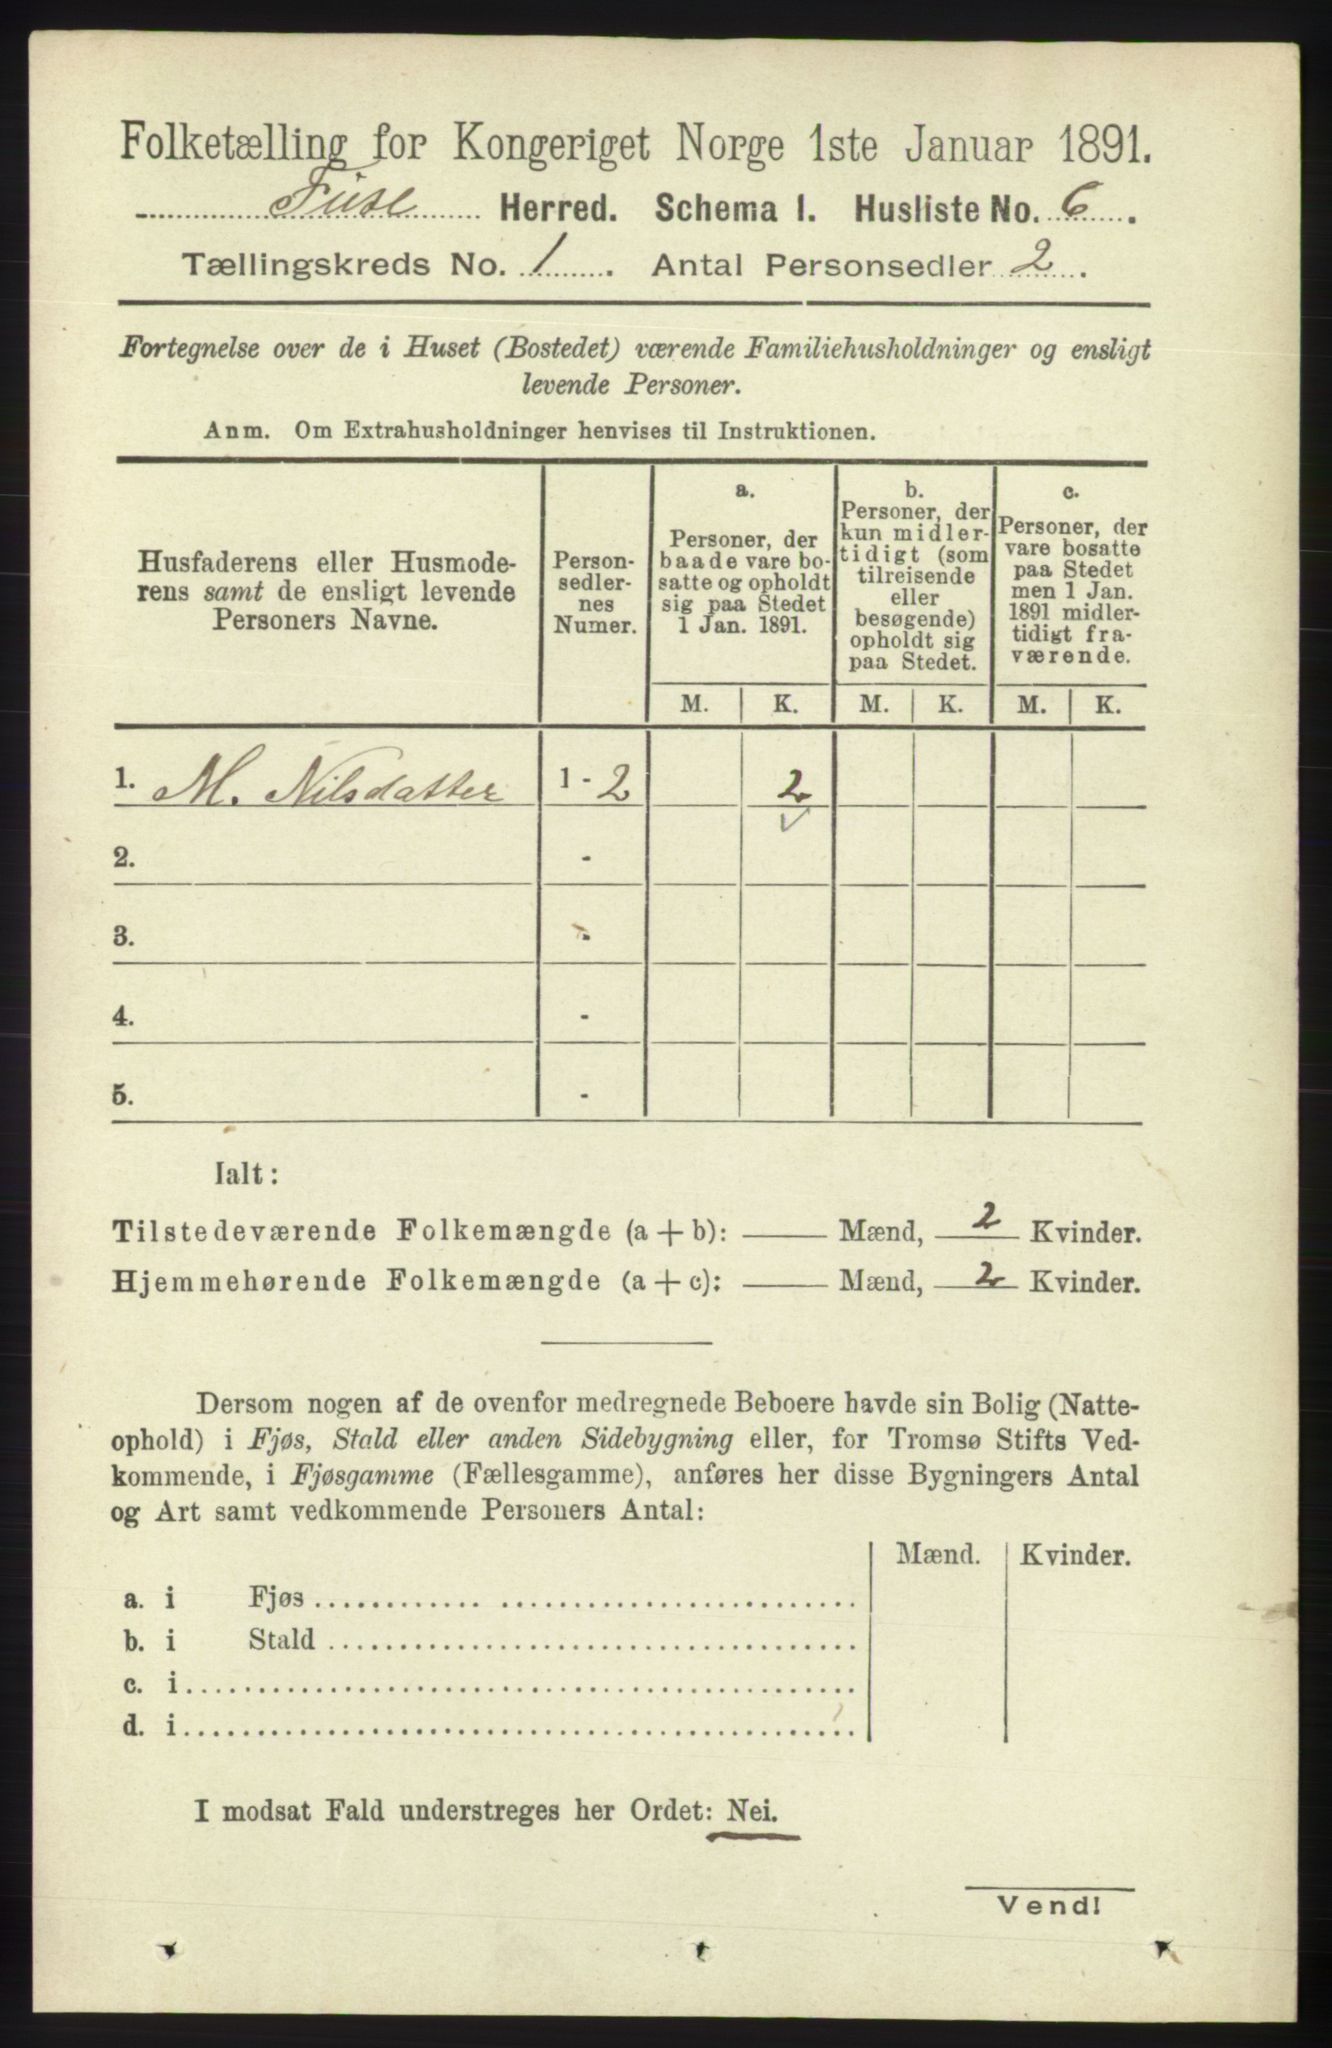 Folketælling for Kongeriget Norge 1ste Januar 1891.
Fuse Herred. Schema I. Husliste No. 6.
Tællingskreds No. 1. Antal Personsedler 2.
Fortegnelse over de i Huset (Bostedet) værende Familiehusholdninger og ensligt
levende Personer.
Anm. Om Extrahusholdninger henvises til Instruktionen.
Husfaderens eller Husmode-
rens samt de ensligt levende
Personers Navne.
Person-
sedler-
nes
Numer.
a.
Personer, der
baade vare bo-
satte og opholdt
sig paa Stedet
1 Jan. 1891.
b.
Personer, der
kun midler-
tidigt (som
tilreisende
eller
besøgende)
opholdt sig
paa Stedet.
c.
Personer, der
vare bosatte
paa Stedet
men 1 Jan.
1891 midler-
tidigt fra-
værende.
M. K. M. K. M. K.
1. M. Nilsdatter 1 - 2 2
2. -
3. -
4. -
5. -
Ialt:
Tilstedeværende Folkemængde (a + b): Mænd, 2 Kvinder.
Hjemmehørende Folkemængde (a + c): Mænd, 2 Kvinder.
Dersom nogen af de ovenfor medregnede Beboere havde sin Bolig (Natte-
ophold) i Fjøs, Stald eller anden Sidebygning eller, for Tromsø Stifts Ved-
kommende, i Fjøsgamme (Fællesgamme), anføres her disse Bygningers Antal
og Art samt vedkommende Personers Antal:
Mænd. Kvinder.
a. i Fjøs
b. i Stald
c. i
d. i
I modsat Fald understreges her Ordet: Nei.
Vend!